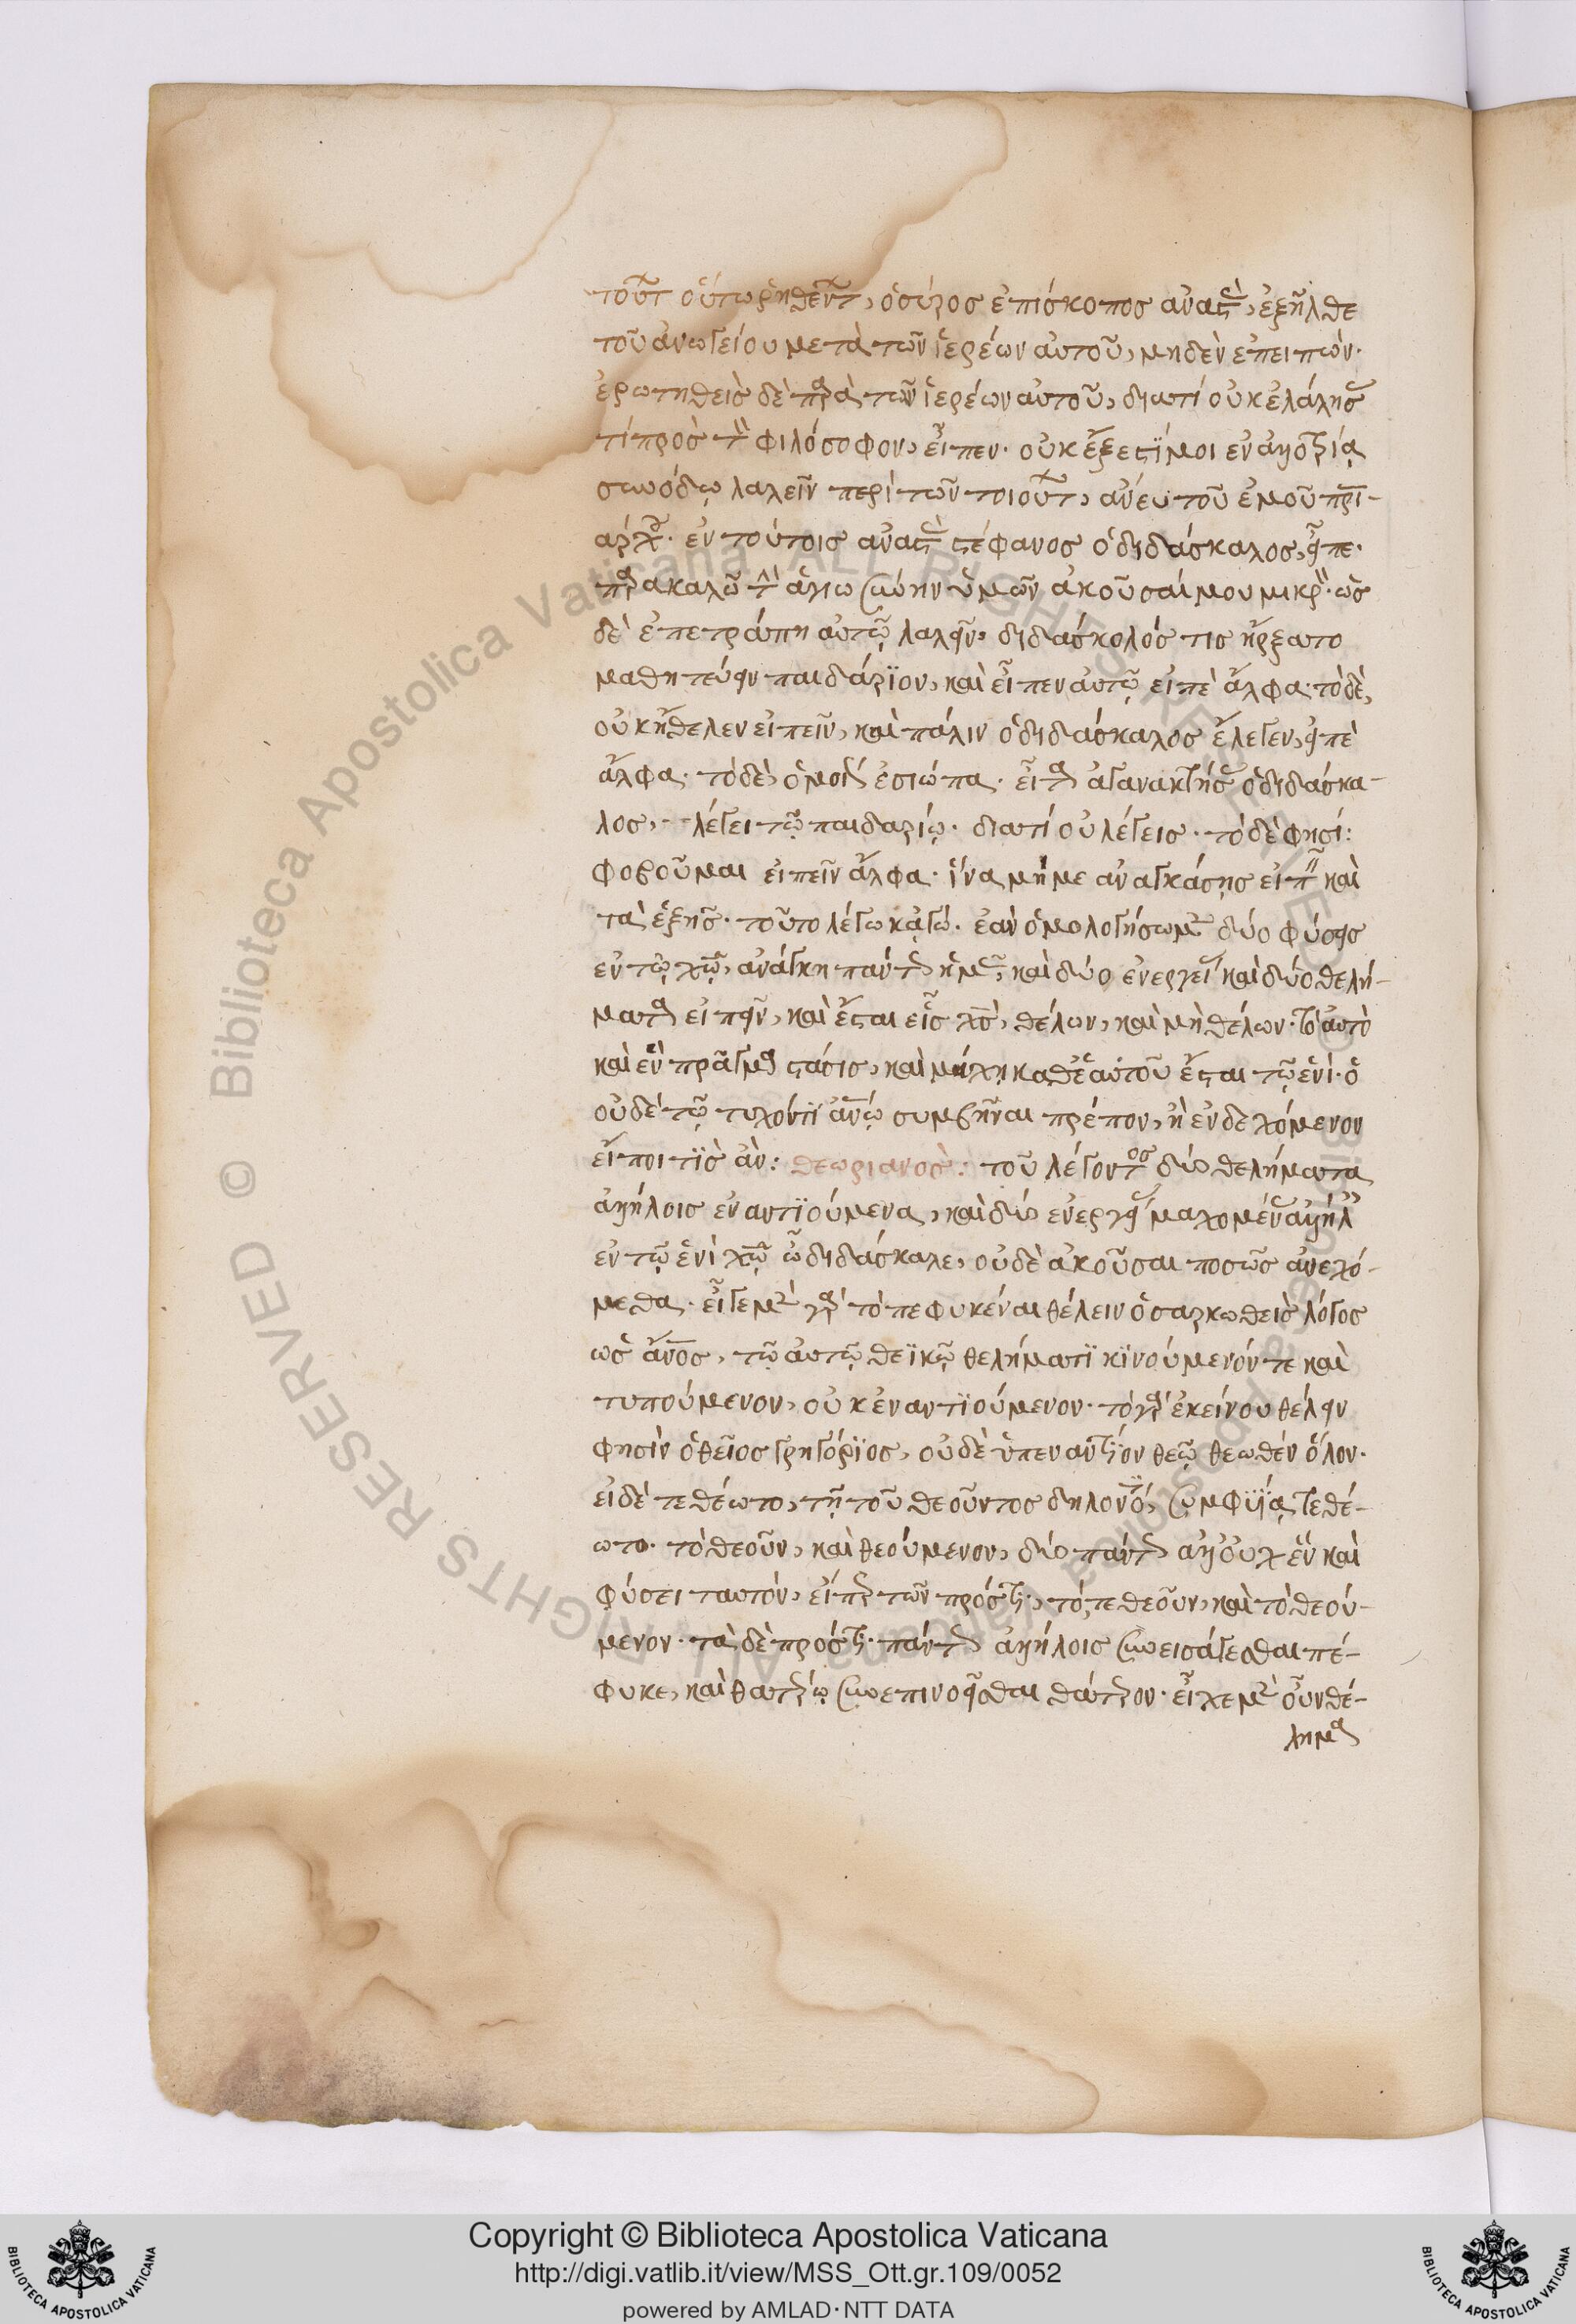 τούτων οὕτω ῥηθέντων, ὁ σύρος ἐπίσκοπος ἀναστὰς, ἐξῆλθε
τοῦ ἀνωγείου μετὰ τῶν ἱερέων αὐτοῦ, μηδὲν ἐπειπών·
ἐρωτηθεὶς δὲ παρὰ τῶν ἱερέων αὐτοῦ, διατί οὐκ ἐλάλησας
τί πρὸς τὸν φιλόσοφον, εἶπεν· οὐκ ἔξεστί μοι ἐν ἀλλοτρίᾳ
συνόδῳ λαλεῖν περὶ τῶν τοιούτων, ἄνευ τοῦ ἐμοῦ πρι-
άρχου· ἐν τούτοις ἀναστὰς στέφανος ὁ διδάσκαλος, εἶπε·
παρακαλῶ τὴν ἁγιωσύνην ὑμῶν ἀκοῦσαί μου μικρὸν· ὡς
δὲ ἐπετράπη αὐτῷ λαλεῖν, διδάσκαλός τις ἤρξατο
μαθητεύειν παιδάριον, καὶ εἶπεν αὐτῷ εἰπὲ ἄλφα· τὸ δὲ,
οὐκ ἤθελεν εἰπεῖν, καὶ πάλιν ὁ διδάσκαλος ἔλεγεν, εἰπὲ
ἄλφα· τὸ δὲ, ὁμοίως ἐσιώπα· εἶτα ἀγανακτήσας ὁ διδάσκα-
λος, λέγει τῷ παιδαρίῳ· διατί οὐ λέγεις· τὸ δὲ φησί:
φοβοῦμαι εἰπεῖν ἄλφα· ἵνα μή με ἀναγκάσῃς εἰπεῖν καὶ
τὰ ἑξῆς· τοῦτο λέγω κἀγώ· ἐὰν ὁμολογήσωμεν δύο φύσεις
ἐν τῷ χῷ, ἀνάγκη πάντως ἡμᾶς, καὶ δύο ἐνεργείας καὶ δύο θελή-
ματα εἰπεῖν, καὶ ἔσται εἷς χς, θέλων, καὶ μὴ θέλων· τὸ αὐτὸ
καὶ ἓν πρᾶγμα στάσις, καὶ μάχη καθ' ἑαυτοῦ ἔσται τῷ ἑνί· ὃ
οὐδὲ τῷ τυχόντι ἀνῳ συμβῆναι πρέπον, ἢ ἐνδεχόμενον
εἴποι τὶς ἄν: θεωριανός: τοῦ λέγοντος δύο θελήματα
ἀλλήλοις ἐναντιούμενα, καὶ δύο ἐνεργείας μαχομένας ἀλλήλαις
ἐν τῷ ἑνὶ χῷ ὦ διδάσκαλε, οὐδὲ ἀκοῦσαι ποσῶς ἀνεχό-
μεθα· εἶγε μὲν γὰρ τὸ πεφυκέναι θέλειν ὁ σαρκωθεὶς λόγος
ὡς ἄνος, τῷ αὐτῷ θεϊκῷ θελήματι κινούμενόν τε καὶ
τυπούμενον, οὐκ ἐναντιούμενον· τὸ γὰρ ἐκείνου θέλειν
φησὶν ὁ θεῖος γρηγόριος, οὐδὲ ὑπεναντίον θεῷ θεωθὲν ὅλον·
εἰ δὲ τεθέωτο, τῇ τοῦ θεοῦντος δηλονότι συμφυΐᾳ τεθέ-
ωτο· τὸ θεοῦν, καὶ θεούμενον, δύο πάντως ἀλλ' οὐχ ἓν καὶ
φύσει ταυτόν, εἴπερ τῶν πρός τι, τό,τε θεοῦν, καὶ τὸ θεού-
μενον· τὰ δὲ πρός τι πάντως ἀλλήλοις συνεισάγεσθαι πέ-
φυκε, καὶ θατέρῳ συνεπινοεῖσθαι θάτερον· εἶχε μὲν οὖν θέ-
λημα
Copyright © Biblioteca Apostolica Vaticana
http://digi.vatlib.it/view/MSS_Ott.gr.109/0052
powered by AMLAD·NTT DATA